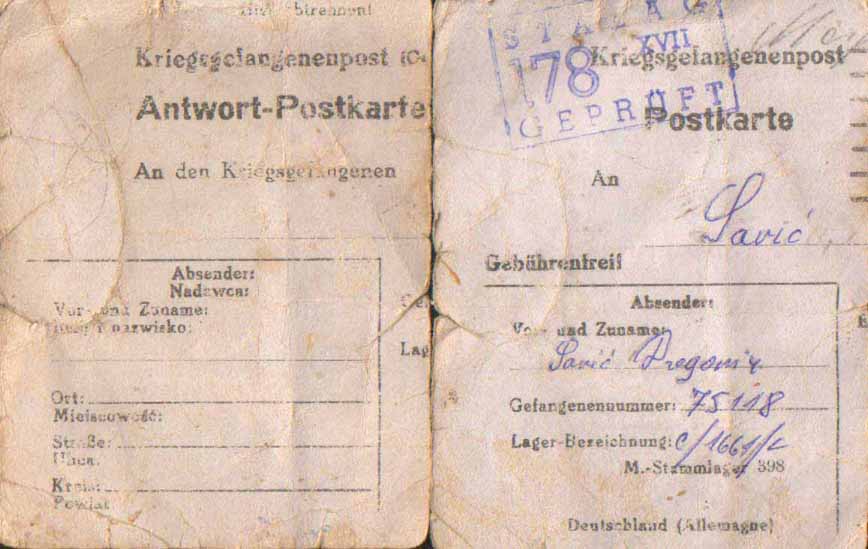 Kriegsgefangenenpost
Antwort-Postkarte
An den Kriegsgefangenen
Absender:
Nadawca:
Vor- und Zuname:
Imię i nazwisko:
Ort:
Miejscowość:
Straße:
Ulica:
Kreis:
Powiat
Lag
STALAG
XVII
78
GEPRÜFT
Kriegsgefangenenpost
Postkarte
An
Savić
Gebührenfrei!
Absender:
Vor- und Zuname:
Savić
Gefangenennummer: 75118
Lager-Bezeichnung: C/1661/c
M.-Stammlager 398
Deutschland (Allemagne)